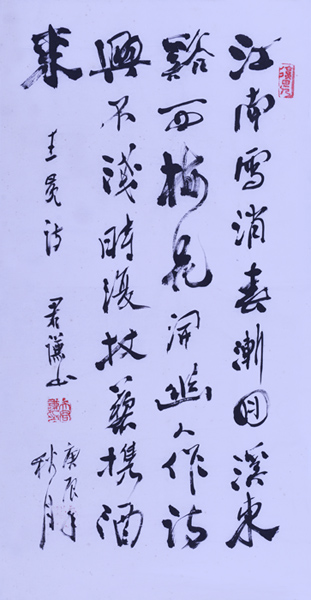 江南雪消春漸回溪東
谿西梅花開幽人作詩
興不淺時復杖藜携酒
來
王冕詩 君謙书
庚辰年
秋月